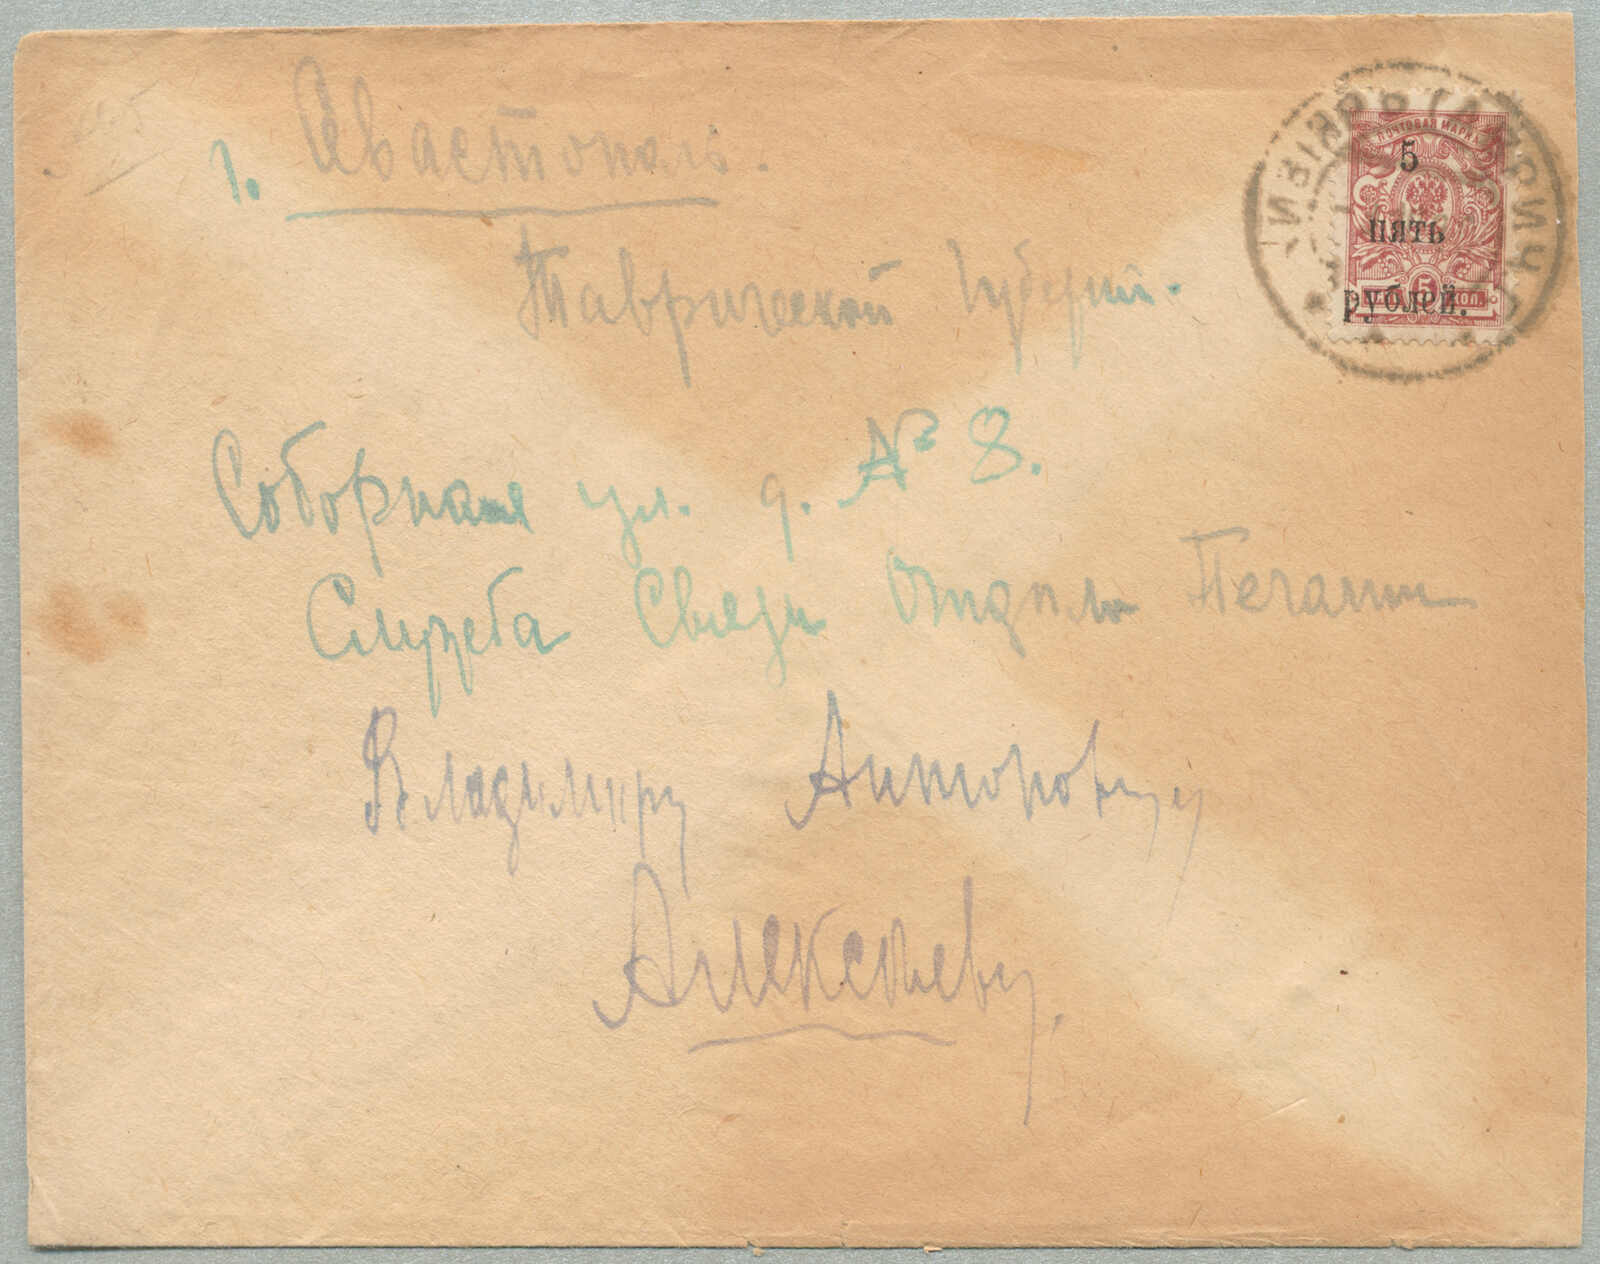 г. Севастополь.
Таврической Губерніи.
Соборная ул. д. № 8.
Служба Связи Отдѣлъ Печати
Владимиру Антоновичу
Алексѣеву.
ПОЧТОВАЯ МАРКА
5
пять
рублей.
5 КОП.